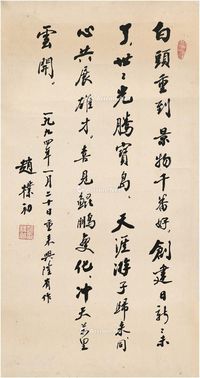 白頭重到景物千番好創建日新〻未
了世〻光騰寶島天涯游子歸來同
心共展雄才喜見鯤鵬變化冲天萬里
雲開
一九九四年一月二十日重來興隆有作
趙樸初